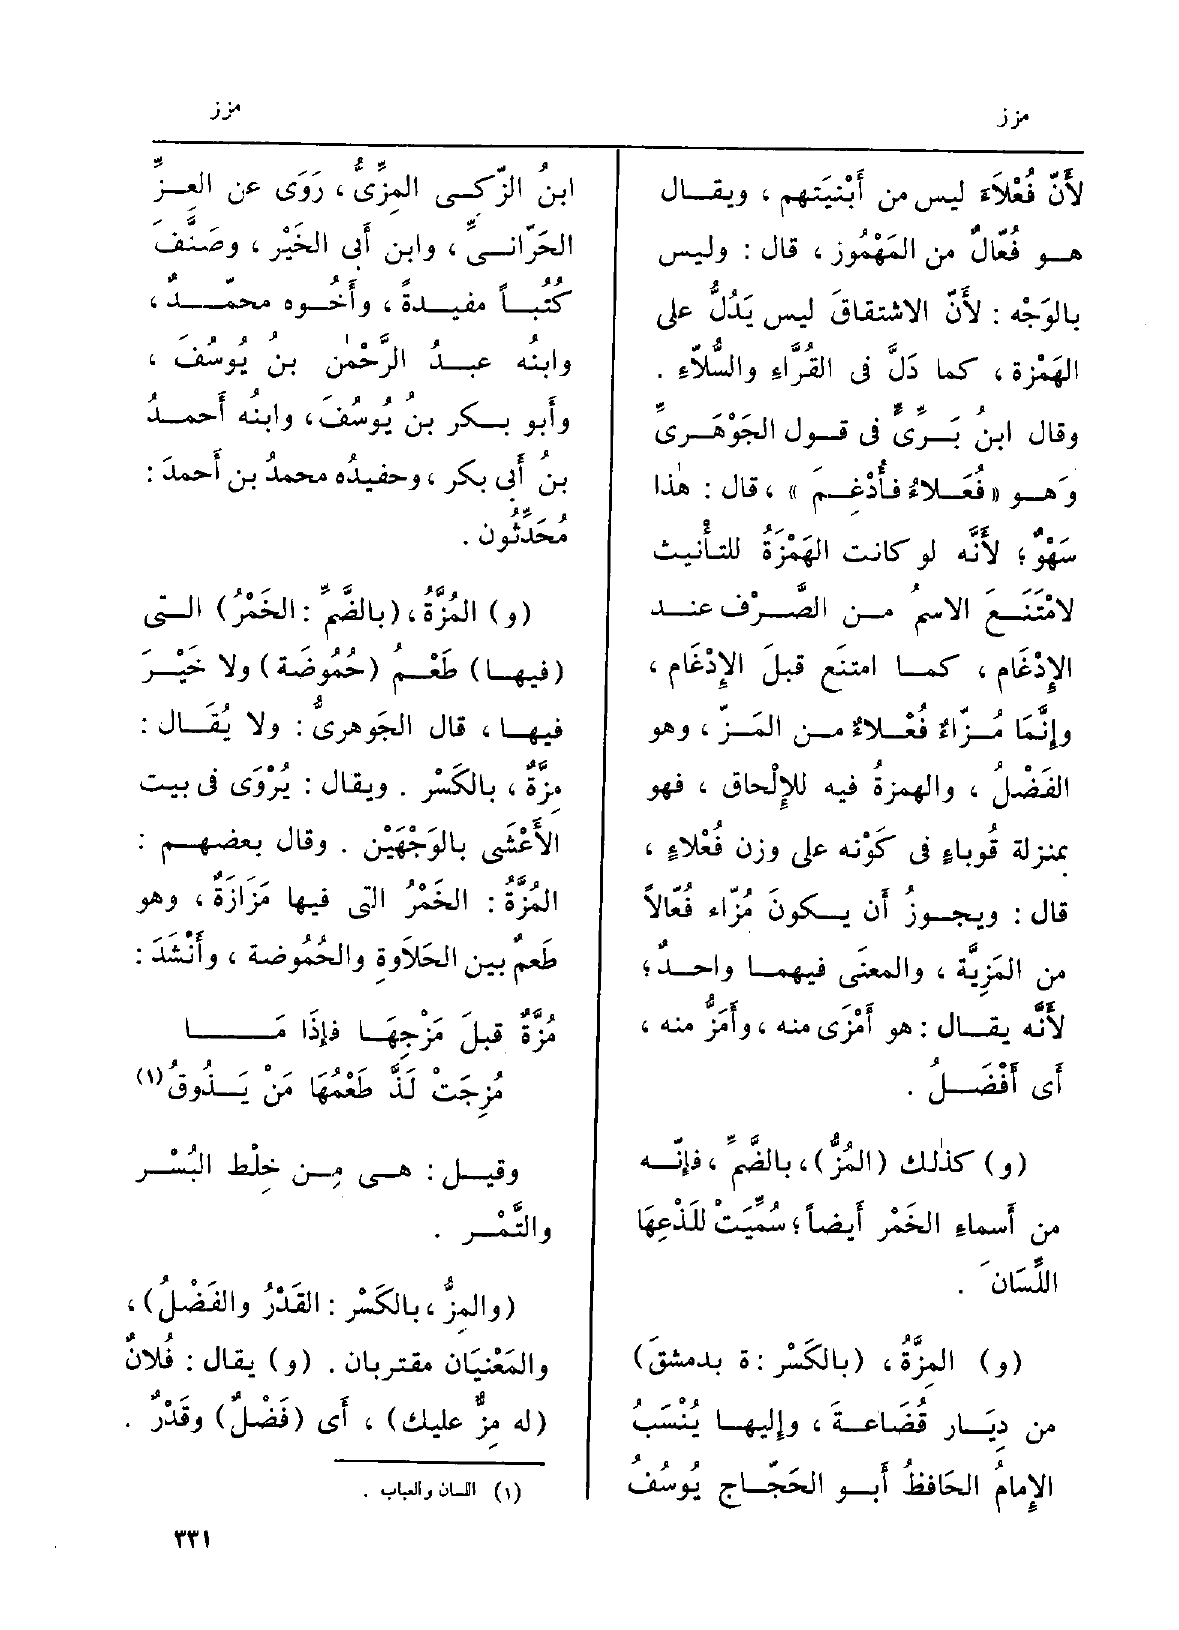 مزز
مزز
لأَنّ فُعْلاَءَ ليس من أَبْنيَتهم ، ويقال
هو فُعّالٌ من المَهْمُوز ، قال : وليس
بالوَجْه : لأَنّ الاشتقاقَ ليس يَدُلُّ على
الهَمْزة ، كما دَلَّ فى القُرَّاءِ والسُّلاّءِ .
وقال ابنُ بَرِّىٍّ فى قول الجَوْهَرِىِّ
وَهو « فُعَلاءُ فأُدْغِمَ » ، قال : هٰذا
سَهْوٌ ؛ لأَنَّه لو كانت الهَمْزَةُ للتأْنيث
لامْتَنَعَ الاسمُ من الصَّرْف عند
الإِدْغَام ، كما امتنَع قبلَ الإِدْغَام ،
وإِنَّمَا مُزَّاءٌ فُعْلاءٌ من المَزّ ، وهو
الفَضْلُ ، والهمزةُ فيه للإِلْحاق ، فهو
بمنزلة قُوباءٍ فى كَوْنه على وزن فُعْلاءٍ ،
قال : ويجوزُ أَن يكونَ مُزّاء فُعّالاً
من المَزِيَّة ، والمعنَى فيهما واحدٌ ؛
لأَنَّه يقال : هو أَمْزَى منه ، وأَمَزُّ منه ،
أَى أَفْضَلُ .
(و) كذٰلك (المُزُّ) ، بالضَّمِّ ، فإِنّه
من أَسماءِ الخَمْر أَيضاً ؛ سُمِّيَتْ لِلَذْعِهَا
اللِّسَانَ .
(و) المِزَّةُ ، (بالكَسْر : ة بدمشقَ)
من دِيَار قُضَاعةَ ، وإِليها يُنْسَبُ
الإِمامُ الحَافظُ أَبو الحَجّاج يُوسُفُ
ابنُ الزَّكى المِزِّىُّ ، رَوَى عن العِزِّ
الحَرّانىِّ ، وابن أَبى الخَيْر ، وصَنَّفَ
كُتُباً مفيدةً ، وأَخُوه محمّدٌ ،
وابنُه عبدُ الرَّحْمٰن بنُ يُوسُفَ ،
وأَبو بكر بنُ يُوسُفَ ، وابنُه أَحمدُ
بنُ أَبى بكر ، وحفيدُه محمدُ بن أَحمدَ :
مُحَدِّثُون .
(و) المُزَّةُ ، (بالضَّمِّ : الخَمْرُ) التى
(فيها) طَعْمُ (حُمُوضَة) ولا خَيْرَ
فيها ، قال الجوهرىُّ : ولا يُقَال :
مِزَّةٌ ، بالكَسْر . ويقال : يُرْوَى فى بيت
الأَعْشَى بالوَجْهَيْن . وقال بعضهم :
المُزَّةُ : الخَمْرُ التى فيها مَزَازَةٌ ، وهو
طَعمٌ بين الحَلاَوةِ والحُمُوضة ، وأَنْشَدَ :
مُزَّةٌ قبلَ مَزْجِهَا فإِذَا مَا
مُزِجَتْ لَذَّ طَعْمُهَا مَنْ يَذُوقُ (١)
وقيل : هى مِن خِلْط البُسْر
والتَّمْر .
(والمِزُّ ، بالكَسْر : القَدْرُ والفَضْلُ) ،
والمَعْنيَان مقتربان . (و) يقال : فُلانٌ
(له مِزٌّ عليك) ، أَى (فَضْلٌ) وقَدْرٌ .
(١) اللسان والعباب .
٣٣١